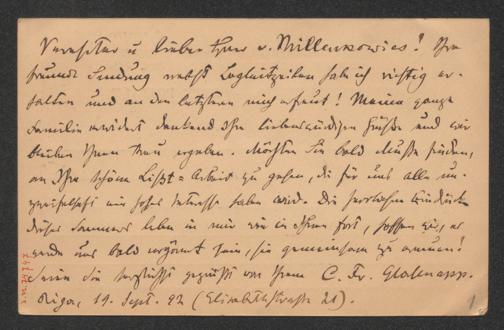 Verehrter u. lieber Herr v. Millenkowics! Ihre
freundl. Sendung nebst Begleitzeilen habe ich richtig er-
halten und an den letzteren mich erfreut! Meine ganze
Familie erwidert dankend Ihre liebenswürdigen Grüße und wir
bleiben Ihnen treu ergeben. Möchten Sie bald Muße finden,
an Ihre schöne Liszt-Arbeit zu gehen, die für uns alle un-
zweifelhaft ein hohes Interesse haben wird. Die herrlichen Eindrücke
dieses Sommers leben in mir wie in Ihnen fort, hoffen wir, es
werde uns bald vergönnt sein, sie gemeinsam zu erneuen!
Seien Sie herzlichst gegrüßt von Ihrem C. Fr. Glasenapp.
Riga, 19. Sept. 92 (Elisabethstrasse 21).
1